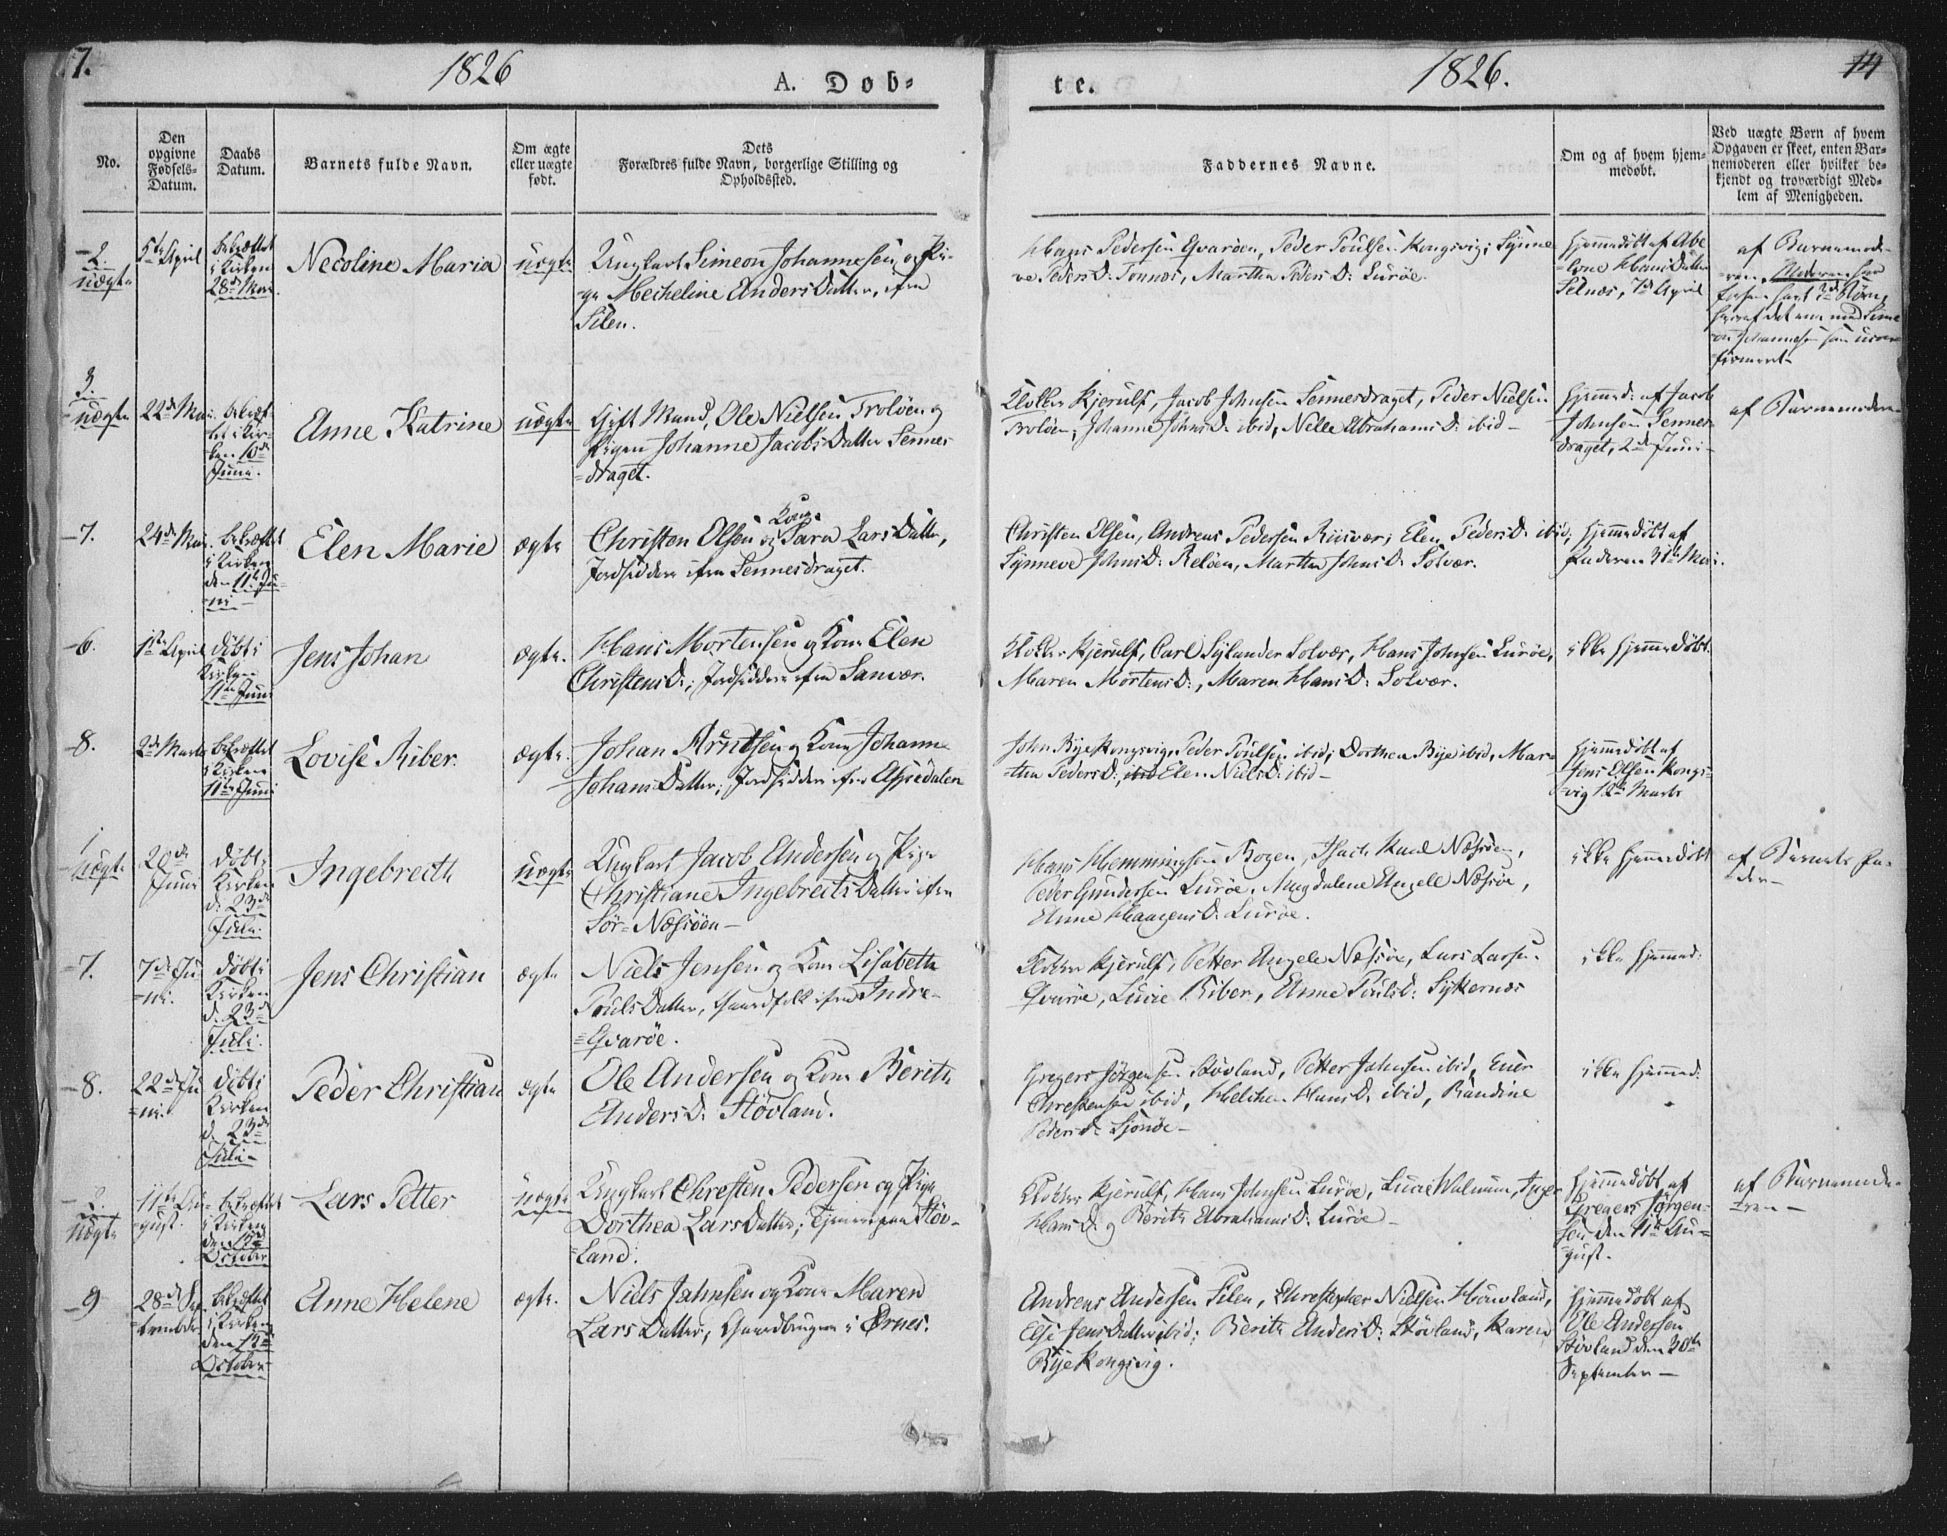 7.
1826
A. Døb-
te.
1826.
14
No.
Den
opgivne
Fødsels-
Datum.
Daabs
Datum.
Barnets fulde Navn.
Om ægte
eller uægte
født.
Dets
Forældres fulde Navn, borgerlige Stilling og
Opholdssted.
Faddernes Navne.
Om og af hvem hjem-
medøbt.
Ved uægte Børn af hvem
Opgaven er skeet, enten Bar-
nemoderen eller hvilket be-
kjendt og troværdigt Med-
lem af Menigheden.
2.
uægte
5te April
bekræftet
i Kirken
28de Mai
Necoline Maria
uægte
Ungkarl Simeon Johannesen og Pi-
ge Mecheline Anders Datter, ifra
Silen.
Hans Pedersen Qvaröen, Peder Poulsen Kongsvig; Synne-
ve Peders D: Tonnes, Martha Peders D: Luröe.
Hjemmedøbt af Abe
lone Hans Datter
Selnæs, 7de April
af Barnemode-
ren
3.
uægte
22de Mai
bekræf-
tet i Kir-
ken 10de
Juni.
Anne Katrine
uægte
Gift Mand, Ole Nielsen Troløen og
Pigen Johanne Jacobs Datter Sennes
draget.
Klokker Kjerulf, Jacob Johnsen Sennesdraget, Peder Nielsen
Troløen, Johanne Johns D: ibid, Nelle Abrahams D: ibid
Hjemmed: af Jacob
Johnsen Sennes
draget, 2de Juni
af Barnemoderen
7.
24de Mai
bekræftet
i Kirken
den 11te Ju-
ni
Elen Marie
ægte
Christen Olsen og Kone Sara Lars Datter,
Jordsiddere ifra Sennesdraget.
Christen Olsen, Andreas Pedersen Riisvær; Elen Peders D: ibid;
Synneve Johns D: Reløen, Martha Johns D: Solvær.
Hjemmedøbt af
Faderen 31te Mai.
6.
1ste April
døbt i
Kirken
11te Juni
Jens Johan
ægte.
Hans Mortensen og Kone Elen
Christens D:; Jordsiddere ifra Sanvær.
Klokker Kjerulf, Carl Sylander Solvær, Hans Johnsen Luröe,
Maren Mortens D:, Maren Hans D: Solvær.
ikke hjemmedøbt.
8.
2de Marts
bekræftet
i Kirken
11te Juni
Lovise Riber.
ægte.
Johan Arntsen og Kone Johanne
Johans Datter; Jordsiddere ifra Aspedalen
John Rye Kongsvig, Peder Poulsen ibid; Dorthea Rye ibid, Mar-
tha Peders D: ibid Elen Niels D: ibid
Hjemmedøbt af
Jens Olsen Kongs-
vig 12te Marts
1
uægte
20de
Juni
døbt i
Kirken
d. 23de
Juli.
Ingebrecth
uægte
Ungkarl Jacob Andersen og Pige
Christiane Ingebrects Datter ifra
Sör-Næsöen
Hans Hemmingsen Bogen, Næsöen,
Peder Gundersen Luröe, Magdalene Angele Næsöe,
Anne Haagens D: Luröe.
ikke hjemmedøbt
af Barnets Fa-
der
7.
7de Ju-
ni.
døbt i
Kirken
d. 23de
Juli.
Jens Christian
ægte
Niels Jensen og Kone Lisabeth
Pouls Datter, Gaardfolk ifra Indre-
Qvaröe.
Klokker Kjerulf, Petter Angele Næsöe, Lars Larsen
Qvaröe, Lucie Riber, Anne Pouls D: Sykkernæs
ikke hjemmed:
8.
22de Ju-
ni.
døbt i
Kirken
d. 23de
Juli
Peder Christian
ægte
Ole Andersen og Kone Berith
Anders D: Stövland.
Gregers Jörgensen Stövland, Petter Johnsen ibid, Even
Christensen ibid, Helchen Hans D: ibid, Randine
Peders D: Sjonöe
ikke hjemmed:
2.
uægte
11te Au-
gust.
bekræftet
i Kirken
October
Lars Petter
uægte
Ungkarl Chresten Pedersen og Pige
Dorthea Lars Datter; Stöv-
land.
Klokker Kjerulf, Hans Johnsen Luröe, Lucie Walnum, Inger
Hans D: og Berith Abrahams D: Luröe
Hjemmedøbt af
Gregers Jørgen-
sen den 11te Au-
gust.
af Barnemode-
ren
9
28de Sep
tember
bekræftet
i Kirken
October
Anne Helene
ægte.
Niels Jahnsen og Kone Maren
Lars Datter, Gaardbruger i Ørnes.
Andreas Andersen Silen, Christopher Nielsen Hovland,
Else Jens Datter ibid; Berith Anders D: Stövland, Karen
Rye Kongsvig.
Hjemmedøbt af
Ole Andersen
Stövland den 30te
September